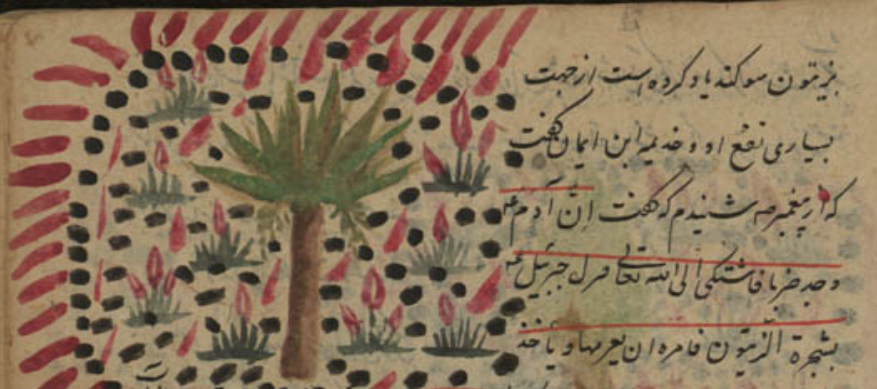 بزیتون سوکند یاد کرده است از جهت
بسیاری نفع او و خدیمه ابن ایمان کفت
که از پیغمبر صـ شنیدم که کفت ان آدم عـ
وجد ضربا فاشتکی الی الله تعالی فنزل جبرئیل عـ
بشجرة الزیتون فامره ان یغرسها و یاخذ